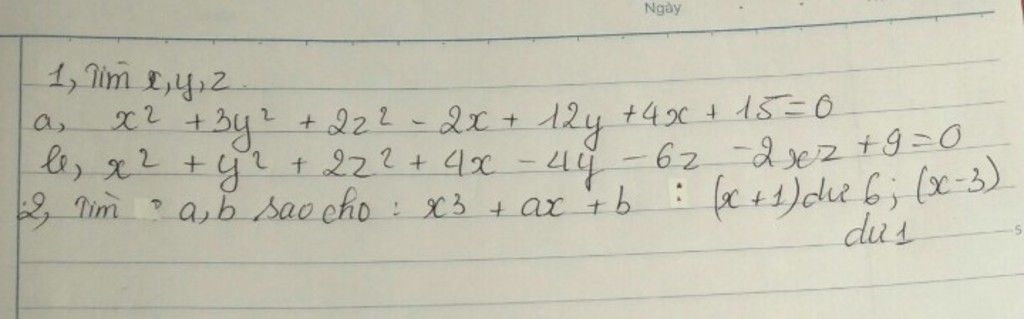 Ngày
1, Tìm x, y, z.
a, x² + 3y² + 2z² - 2x + 12y + 4x + 15 = 0
b, x² + y² + 2z² + 4x - 4y - 6z - 2xz + 9 = 0
2, Tìm a, b sao cho : x3 + ax + b : (x + 1) dư 6 ; (x - 3)
dư 1